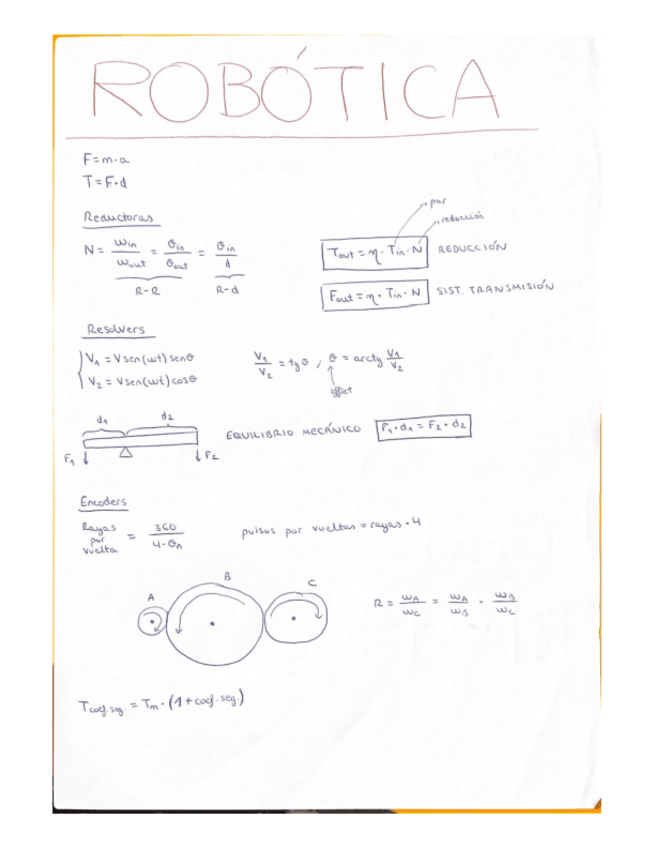 ROBÓTICA
F = m · a
T = F · d
Reductoras
N = ωin/ωout = θin/θout = θin/d
R-R
R-d
par
reducción
Tout = η · Tin · N REDUCCIÓN
Fout = η · Tin · N SIST. TRANSMISIÓN
Resolvers
V1 = V sen(ωt) senθ
V2 = V sen(ωt) cosθ
V1/V2 = tg θ ; θ = arctg V1/V2
offset
d1 d2
F1 F2
EQUILIBRIO MECÁNICO F1 · d1 = F2 · d2
Encoders
Rayas por vuelta = 360/4·θn
pulsos por vueltas = rayas · 4
A B C
R = ωA/ωC = ωA/ωB · ωB/ωC
Tcoef.seg. = Tm · (1 + coef. seg.)